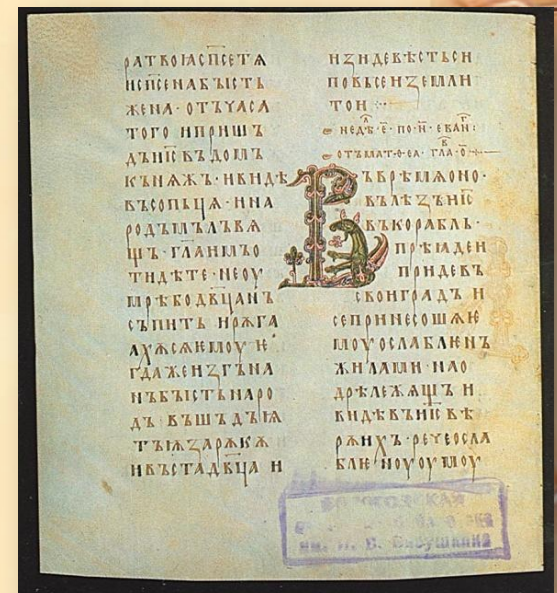 ратвоꙗс҃псетѧ
ис҃псенабꙑсть
жена· отъчаса
того ипришь
дъи҃свъдомъ
кънѧжь· ивидѣ
въсопьцѧ· ина
родъмълъвѧ
щь· г҃лаимъо
тидѣте· неоу
мрѣбод҃вцанъ
съпить ирѫга
ахѫсѧѥмоу ѥ
гдажеизгъна
нъбꙑстьнаро
дъ· въшьдъꙗ
тъꙗзарѫкѫ
ивъстад҃вца и
изидевѣстьси
повьсеиземли
тои
недѣ· е҃· по·н· еван·
отъмат·о·еа· гла·о·
въврѣмѧоно·
вълѣзъи҃с
въкорабль·
прѣиде и
придевъ
своиградъ и
сепринесошѧѥ
моуослаблѥнъ
жилами нао
дрѣлежѧщь и
видѣвъи҃свѣ
рѫихъ· речеосла
блѥноуоумоу
ВОЛОГОДСКАЯ
им. И. В. Бабушкина